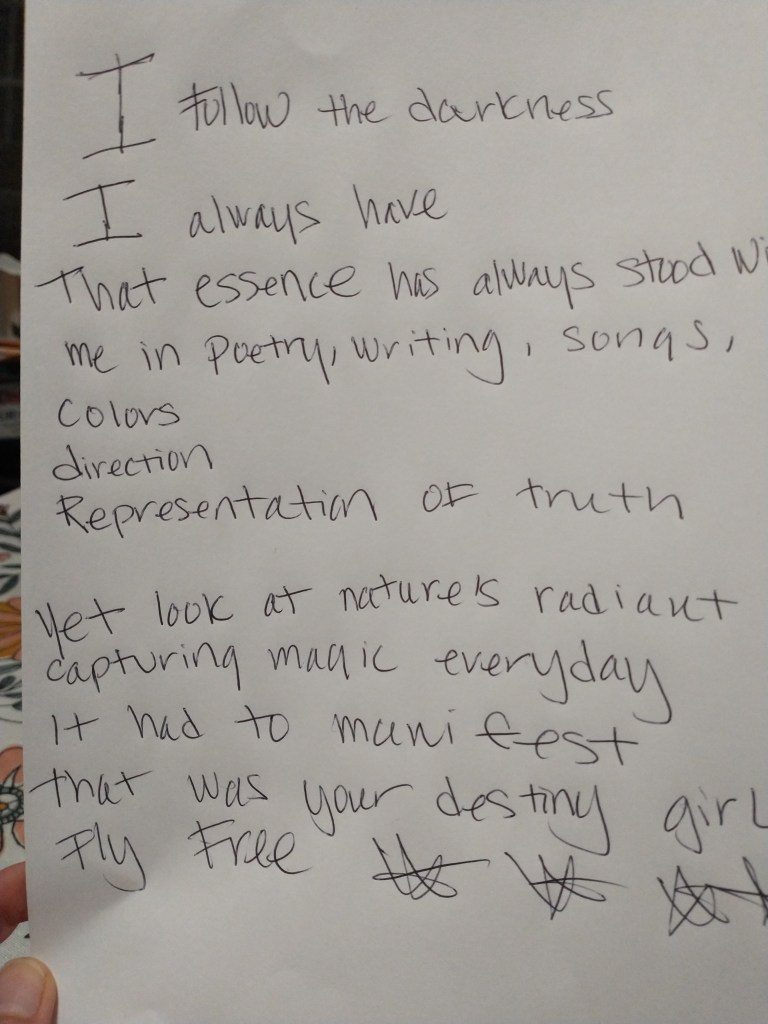 I follow the darkness
I always have
That essence has always stood wi
me in poetry, writing, songs,
colors
direction
Representation of truth
Yet look at nature's radiant
capturing magic everyday
It had to manifest
that was your destiny girl
Fly Free